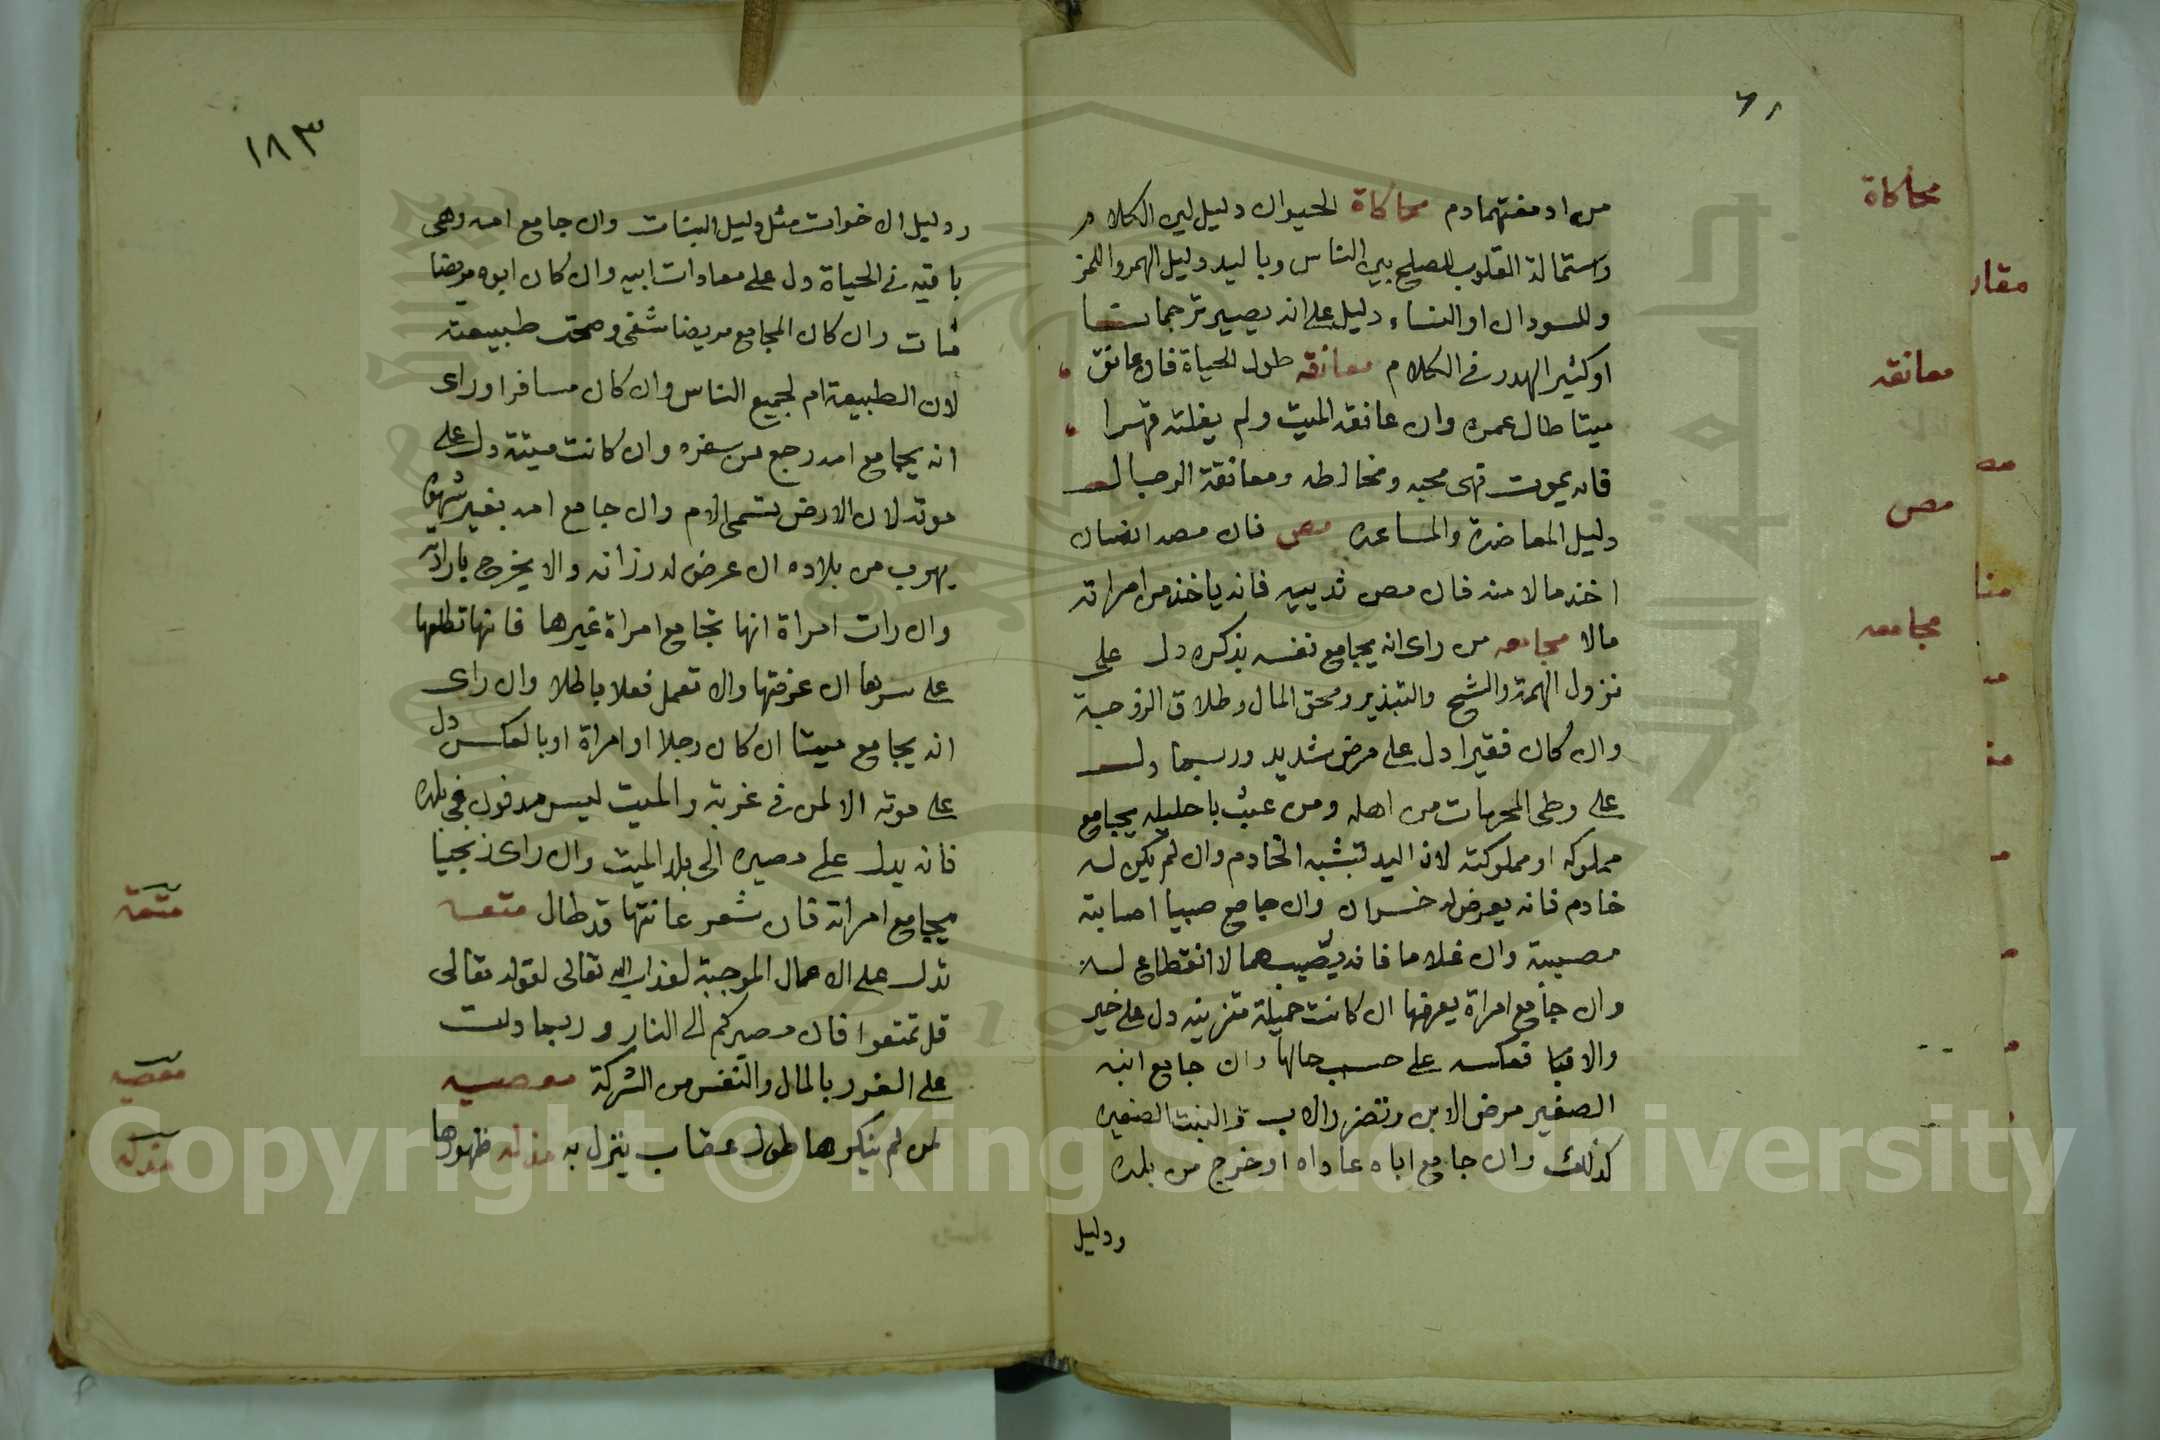 محاكاة
معانقه
مص
مجامعه
من او مغتهمادم محاكاة الحيوان دليل لين الكلام
واستمالة القلوب للصلح بين الناس وباليد دليل الهمز واللمز
وللسودان او النساء دليل على انه يصير ترجمانا
او كثير الهدر في الكلام معانقه طول الحياة فان عانق
ميتا طال عمره وان عانقه الميت ولم يفلته قهرا
فانه يموت فهى محبه ومخالطه ومعانقة الرجال
دليل المعاضدة والمساعده مص فان مصه انسان
اخذ مالا منه فان مص ثدييه فانه ياخذ من امراته
مالا مجامعه من راى انه يجامع نفسه بذكره دل على
نزول الهمة والشح والتبذير ومحق المال وطلاق الزوجة
وان كان فقيرا دل على مرض شديد وربما دل
على وطى المحرمات من اهله ومن عبث باحليله يجامع
مملوكه او مملوكته لان اليد تتشبه الخادم وان لم يكن له
خادم فانه يعرض له خسران وان جامع صبيا اصابته
مصيبة وان غلاما فانه يصيبهما لا انقطاع له
وان جامع امراة يعرفها ان كانت جميلة متزينه دل على خير
والا فبا فعكسه على حسب حالها وان جامع ابنه
الصغير مرض الابن وتضرر الاب والبنت الصغيره
كذلك وان جامع اباه عاداه او خرج من بلده
ودليل
١٨٣
ودليل الاخوات مثل دليل البنات وان جامع امه وهى
باقيه في الحياة دل على معادات ابيه وان كان ابوه مريضا
مات وان كان المجامع مريضا شفى وصحت طبيعته
لان الطبيعة ام لجميع الناس وان كان مسافرا وراى
انه يجامع امه رجع من سفره وان كانت ميتة دل على
موته لان الارض تسمى الام وان جامع امه بغير شهوة
يهرب من بلاده ان عرض له رزانه والا يخرج بارادته
وان رات امراة انها تجامع امراة غيرها فانها تطلعها
على سرها ان عرفتها والا تعمل فعلا باطلا وان راى
انه يجامع ميتا ان كان رجلا او امراة او بالعكس دل
على موته الا لمن في غربة والميت ليس مدفون في بلده
فانه يدل على مصيره الى بلد الميت وان راى زنجيا
يجامع امراته فان شعر عانتها قد طال متعه
تدل على الاعمال الموجبة لعذاب الله تعالى لقوله تعالى
قل تمتعوا فان مصيركم الى النار وربما دلت
على الغرور بالمال والنفس من الشركة معصيه
لمن لم ينكرها طول عقاب ينزل به منزله ظهورها
متعه
معصيه
منزله
Copyright © King Saud University